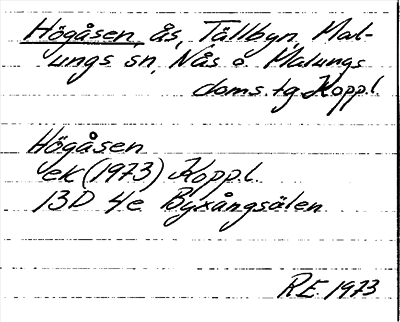 Högåsen, ås, Tällbyn, Mal-
ungs sn, Nås o Malungs
doms. tg Koppl.
Högåsen
ek (1973) Koppl.
13D 4e Byxångsälen
RE 1973